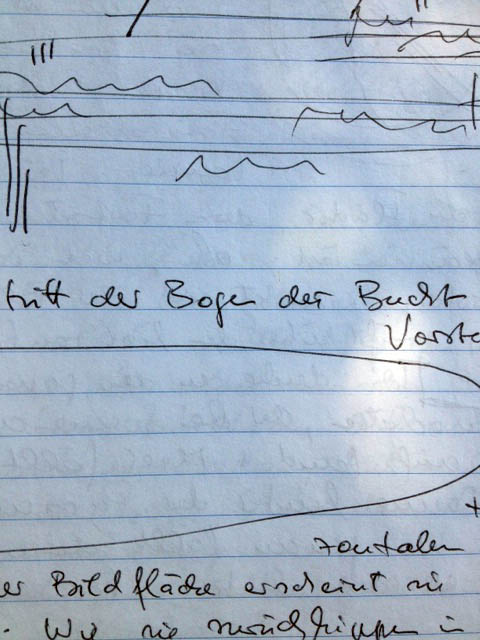 tritt der Bogen der Bucht
Vorste
zontalen
er Bildfläche erscheint sie
. Wie sie zurückkippen in